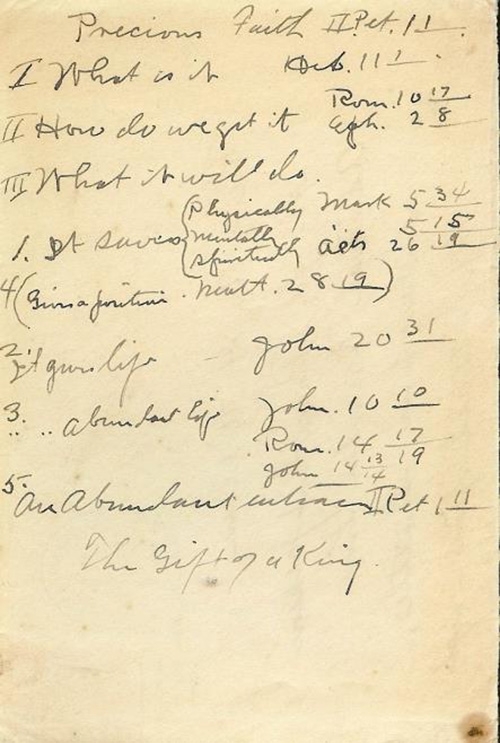 Precious Faith II Pet. 1 1
I What is it Heb. 11 1
Rom. 10 17
II How do we get it Eph. 2 8
III What it will do.
Physically Mark 5 34
1. It saves Mentally 5 15
Spiritually Acts 26 19
4 (Gives a position. Matt. 28 19)
2. It gives life - John 20 31
3. " " abundant life John. 10 10
Rom. 14 17 19
John 14 13 14
5. An Abundant entrance II Pet 1 11
The Gift of a King.